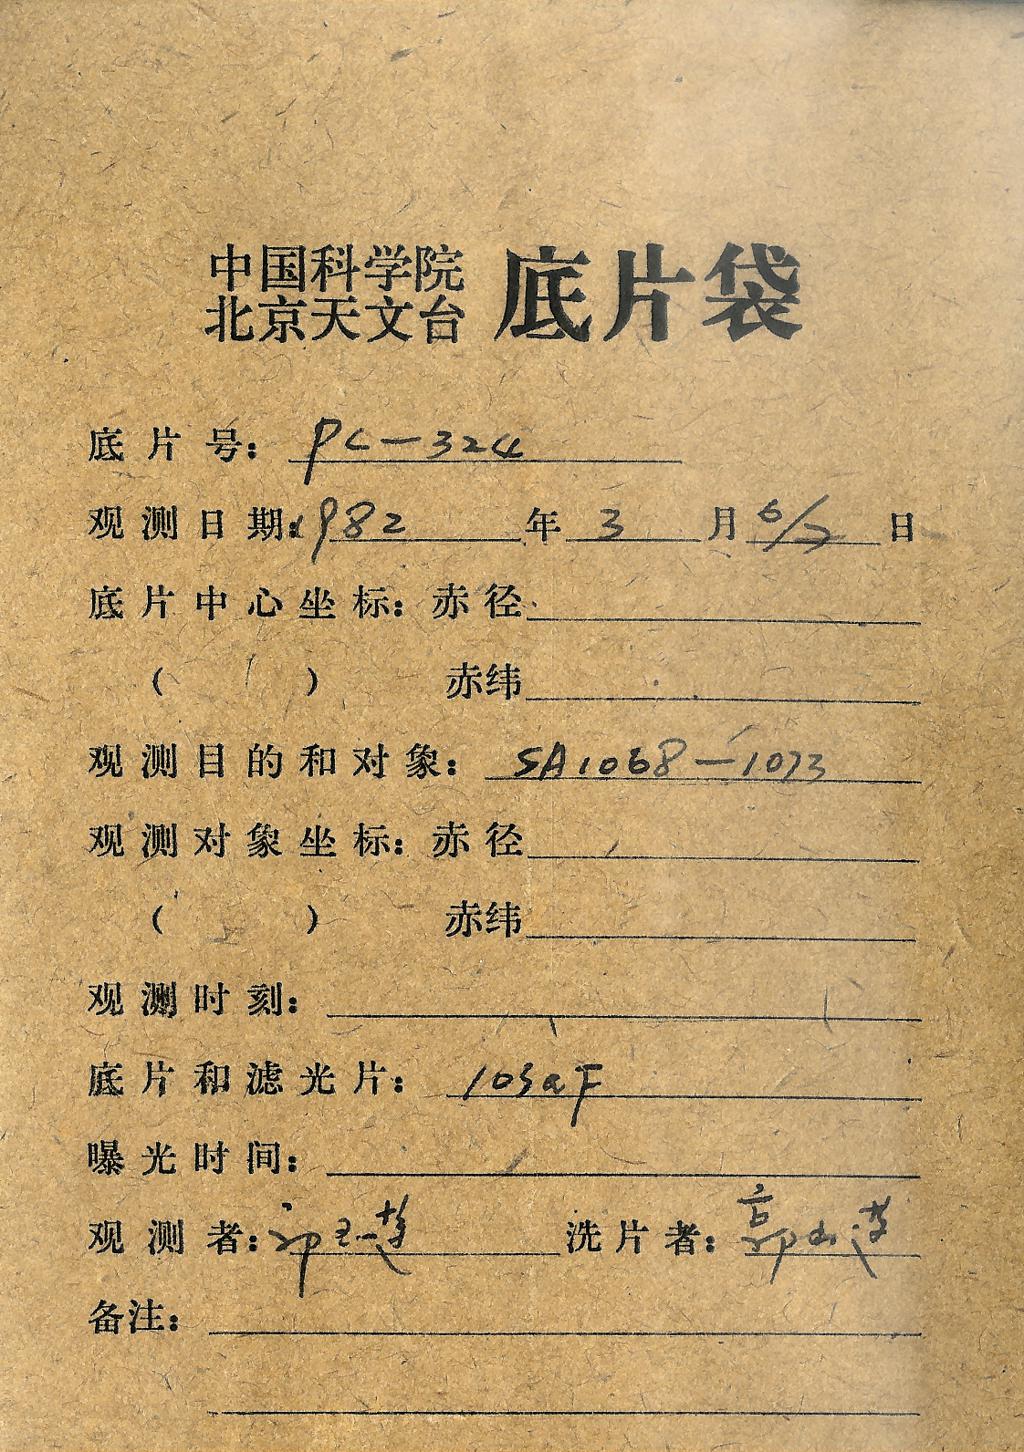 中国科学院
北京天文台 底片袋
底片号: PC-324
观测日期: 1982年3月6/7日
底片中心坐标: 赤径
( ) 赤纬
观测目的和对象: SA1068-1073
观测对象坐标: 赤径
( ) 赤纬
观测时刻:
底片和滤光片: 103aF
曝光时间:
观测者: 洗片者: 郭
备注: